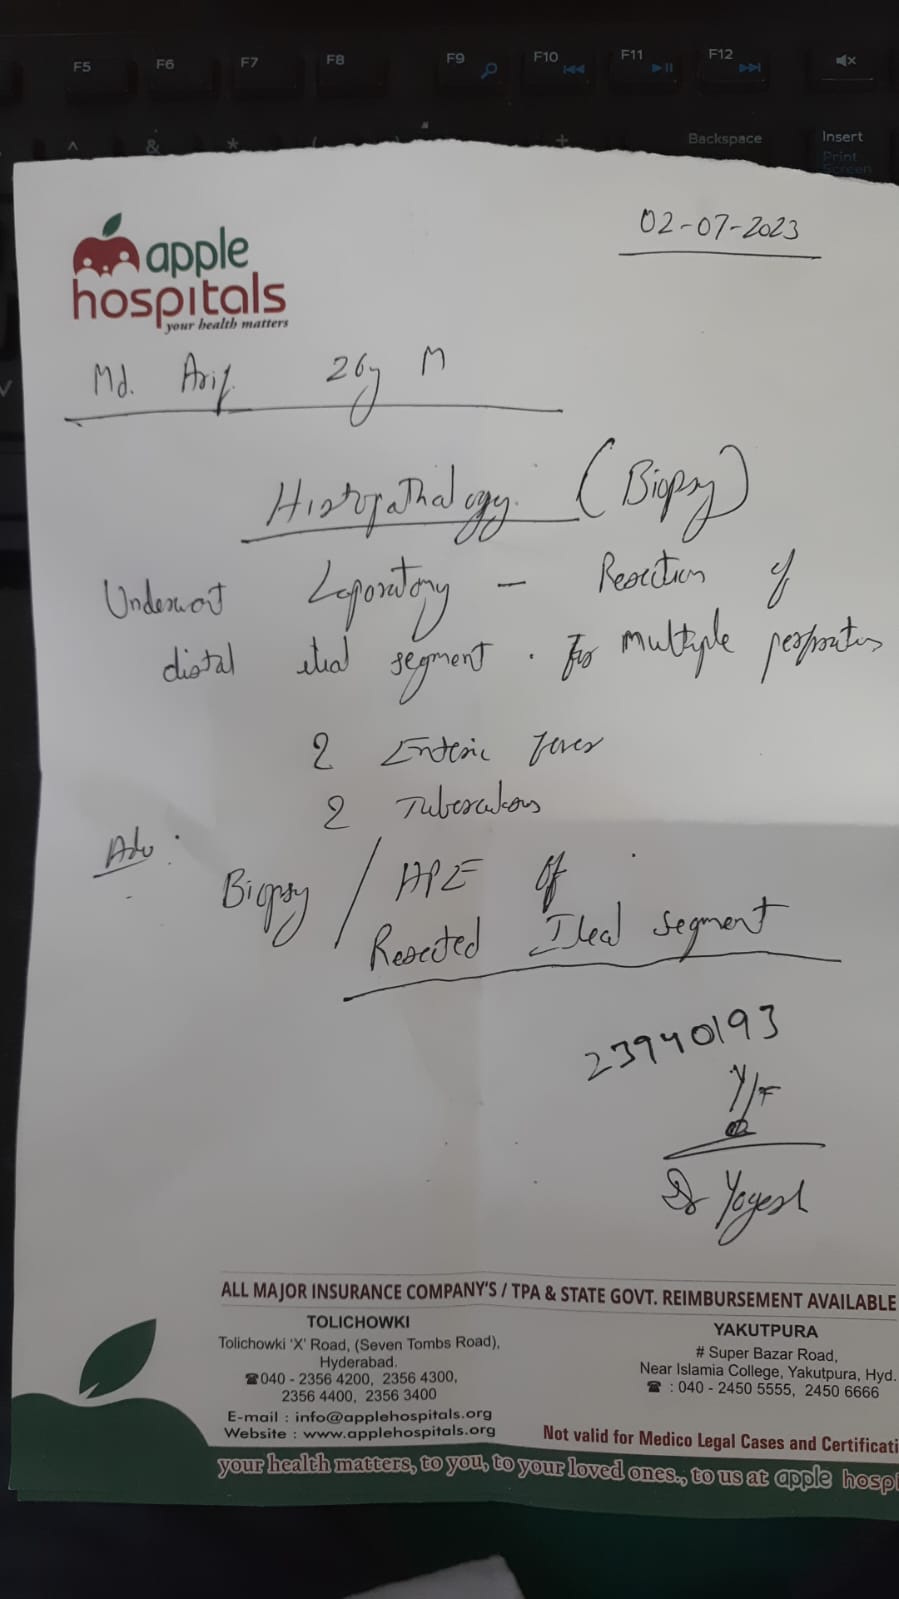 F5 F6 F7 F8 F9 F10 F11 F12
^ & * ( + Backspace Insert
Print
Screen
02-07-2023
apple
hospitals
your health matters
Md. Arif 26y M
Histopathology (Biopsy)
Underwent Laporatomy - Resection of
distal ileal segment. For multiple
? Enteric fever
? Tuberculous
Adv:
Biopsy / HPE of
Resected Ileal segment
23940193
Y/F
Dr Yogesh
ALL MAJOR INSURANCE COMPANY'S / TPA & STATE GOVT. REIMBURSEMENT AVAILABLE
TOLICHOWKI
Tolichowki 'X' Road, (Seven Tombs Road),
Hyderabad.
☎040 - 2356 4200, 2356 4300,
2356 4400, 2356 3400
E-mail : info@applehospitals.org
Website : www.applehospitals.org
YAKUTPURA
# Super Bazar Road,
Near Islamia College, Yakutpura, Hyd.
☎ : 040 - 2450 5555, 2450 6666
Not valid for Medico Legal Cases and Certificati
your health matters, to you, to your loved ones., to us at apple hospi